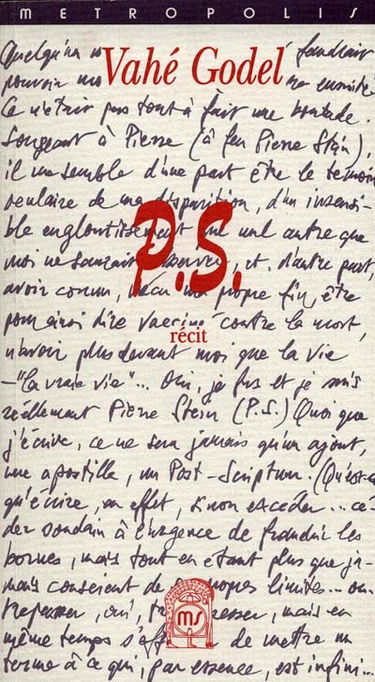 METROPOLIS
Quelqu'un faudrait
Vahé Godel
pouvoir ensuite
Ce n'était pas tout à fait une boutade.
Songeant à Pierre (à feu Pierre Stein),
il me semble d'une part être le témoin
oculaire de ma disparition, d'un insensi-
ble engloutissement nul autre que
moi ne saurait et, d'autre part,
P.S.
avoir connu, vécu ma propre fin, être
pour ainsi dire vacciné contre la mort,
récit
n'avoir plus devant moi que la vie
– "la vraie vie"... Oui, je fus et je suis
réellement Pierre Stein (P.S.) Quoi que
j'écrive, ce ne sera jamais qu'un ajout,
une apostille, un Post-Scriptum. (Qu'est-ce
qu'écrire, en effet, sinon excéder... cé-
der soudain à l'urgence de franchir les
bornes, mais tout en étant plus que ja-
mais conscient de propres limites... ou-
trepasser, oui, mais en
ms
même temps de mettre un
terme à ce qui, par essence, est infini...